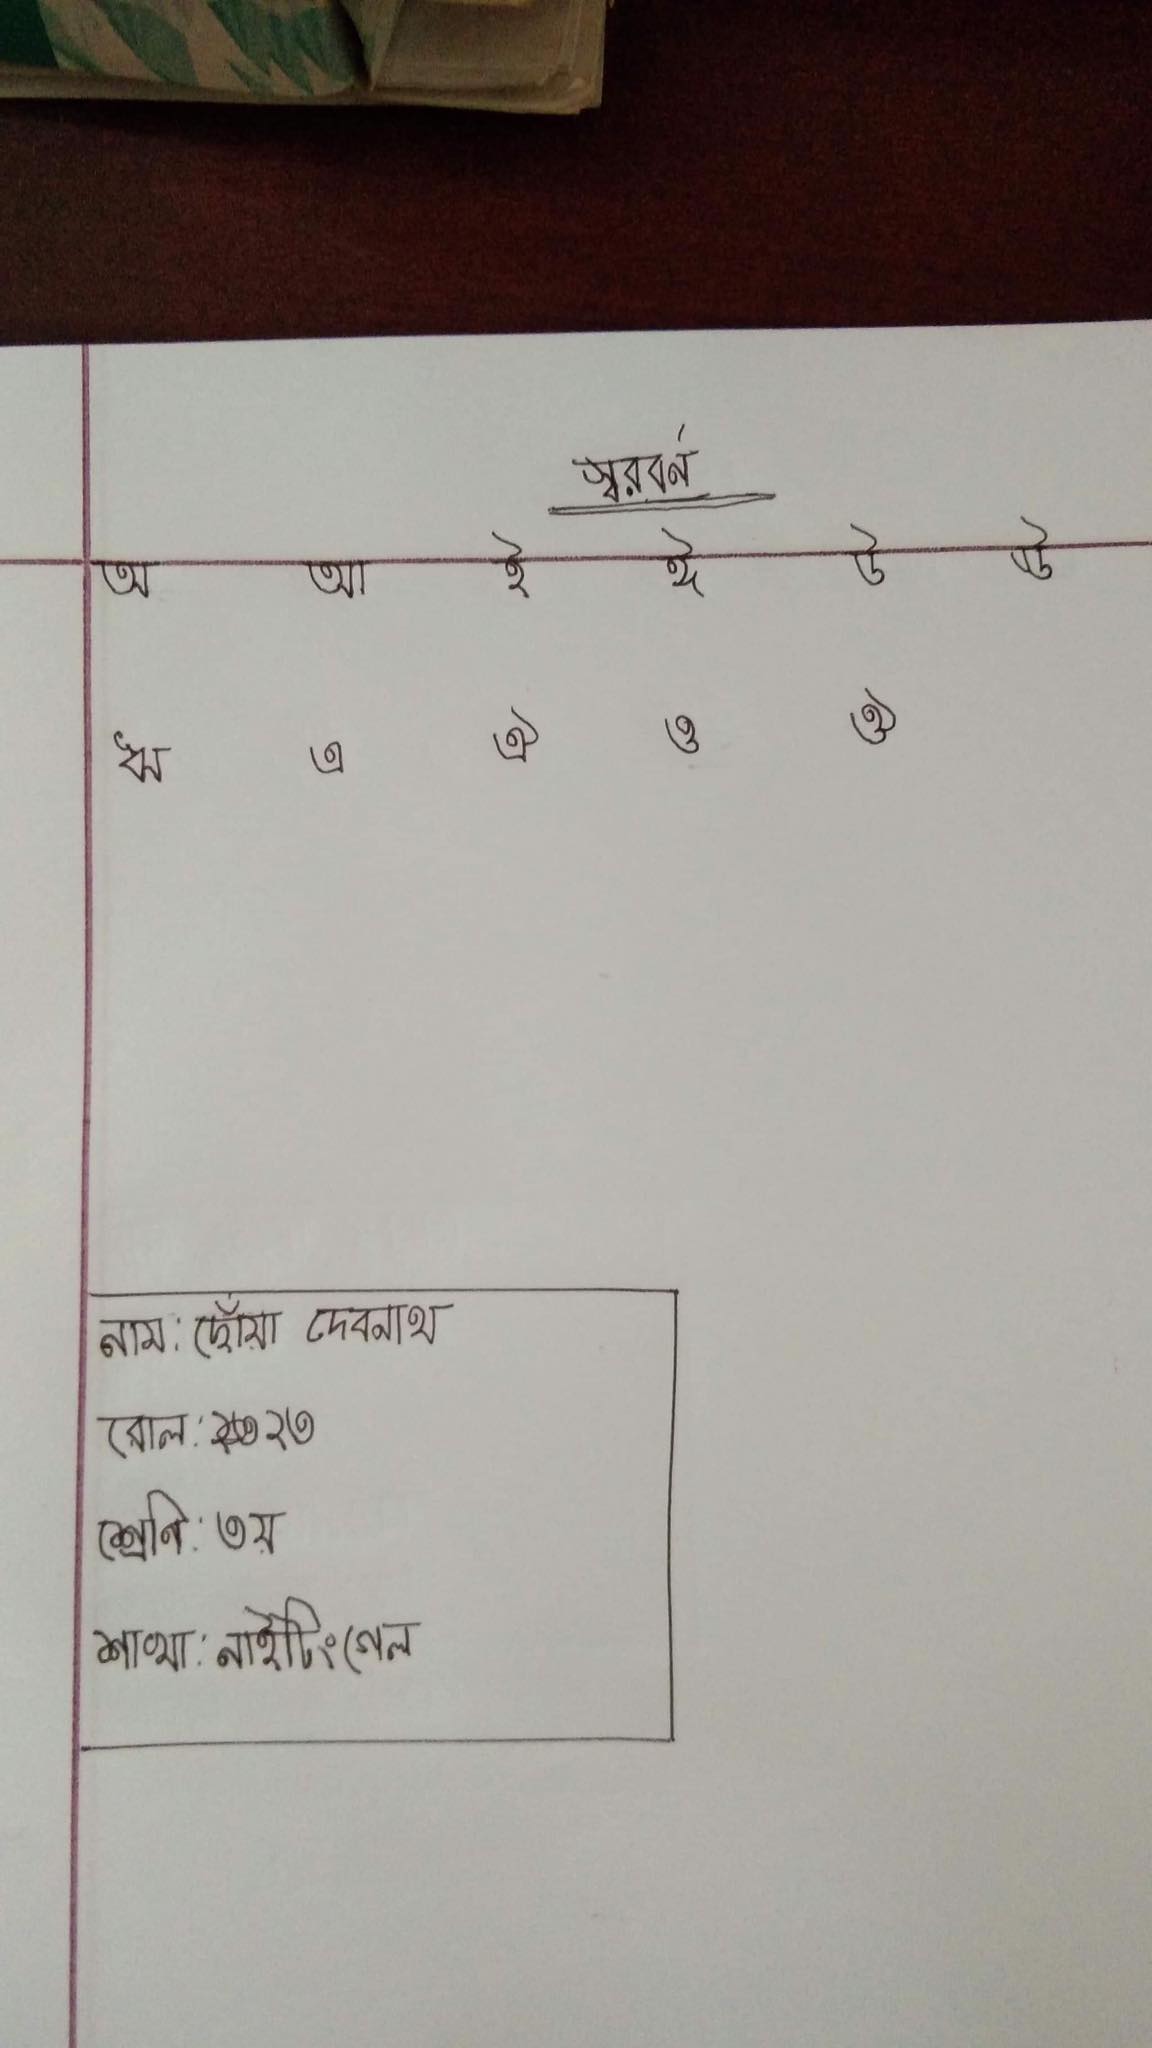 স্বরবর্ন
অ আ ই ঈ উ ঊ
ঋ এ ঐ ও ঔ
নাম: ছোঁয়া দেবনাথ
রোল: ২৩
শ্রেনি: ৩য়
শাখা: নাইটিংগেল